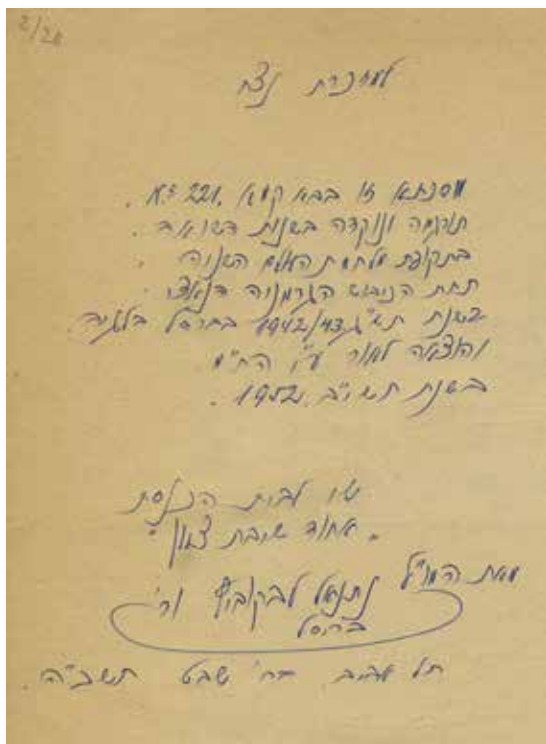 2/26
למזכרת נצח
מסכתא זו בבא קמא. 221 דף.
תורגמה ונוקדה בשנות השואה.
בתקופת מלחמת העולם השניה
תחת הכיבוש הגרמניה הנאצי
בשנת תש"ג 1942/43 בבריסל בלגיה.
והוצאה לאור ע"י הח"מ
בשנת תשי"ב. 1952.
שי לבית הכנסת
"אחוד שיבת ציון"
מאת המו"ל נתנאל לבקוביץ
בריסל
תל אביב. שבט תשכ"ה.